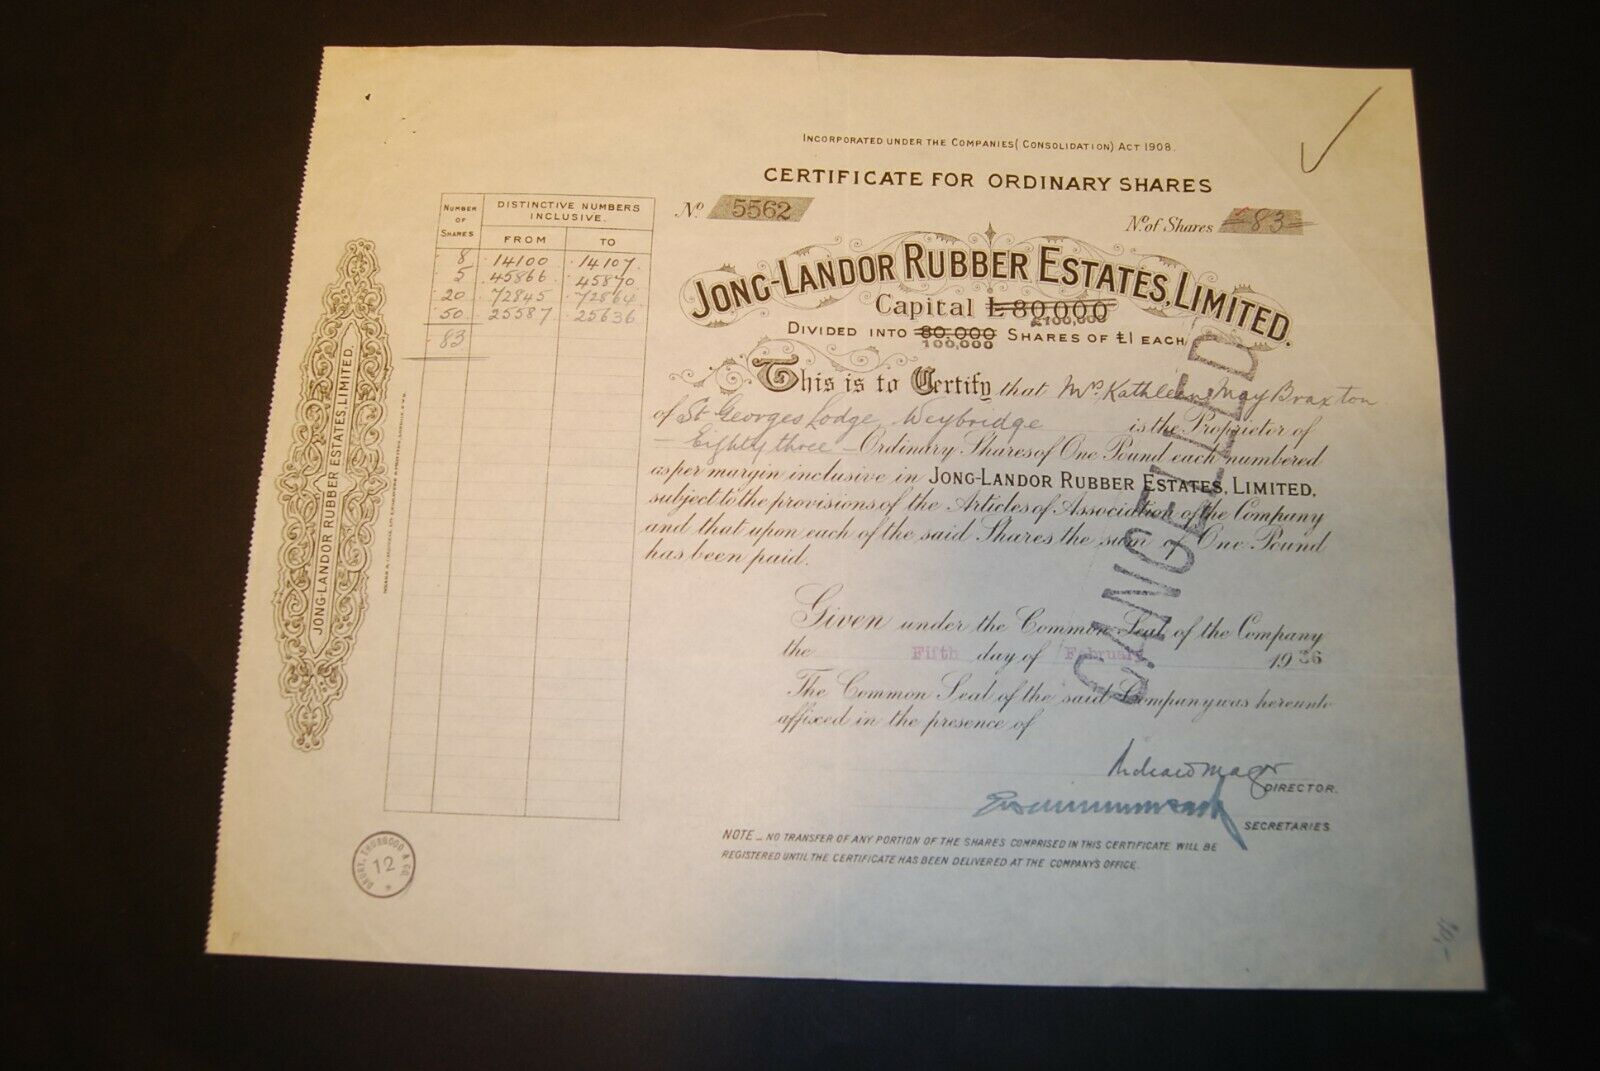 INCORPORATED UNDER THE COMPANIES (CONSOLIDATION) ACT 1908.
CERTIFICATE FOR ORDINARY SHARES
No. 5562
No. of Shares 83
JONG-LANDOR RUBBER ESTATES, LIMITED.
Capital £80,000
£100,000
DIVIDED INTO 80,000 SHARES OF £1 EACH
100,000
This is to Certify that Mrs Kathleen May Braxton
of St Georges Lodge, Weybridge is the Proprietor of
- Eighty three - Ordinary Shares of One Pound each numbered
as per margin inclusive in JONG-LANDOR RUBBER ESTATES, LIMITED,
subject to the provisions of the Articles of Association of the Company
and that upon each of the said Shares the sum of One Pound
has been paid.
Given under the Common Seal of the Company
the Fifth day of February 1936
The Common Seal of the said Company was hereunto
affixed in the presence of
DIRECTOR.
SECRETARIES
NOTE _ NO TRANSFER OF ANY PORTION OF THE SHARES COMPRISED IN THIS CERTIFICATE WILL BE
REGISTERED UNTIL THE CERTIFICATE HAS BEEN DELIVERED AT THE COMPANY'S OFFICE.
CANCELLED
NUMBER OF SHARES DISTINCTIVE NUMBERS INCLUSIVE.
FROM TO
8 14100 14107
5 45866 45870
20 72845 72864
50 25587 25636
83
JONG-LANDOR RUBBER ESTATES, LIMITED.
THOROGOOD & CO.
12